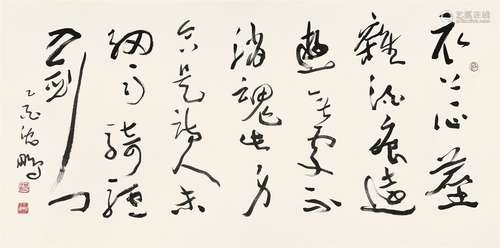 衣上征塵
雜酒痕遠
遊無處不
消魂此身
合是詩人未
細雨騎驢
入劍門
沈鵬